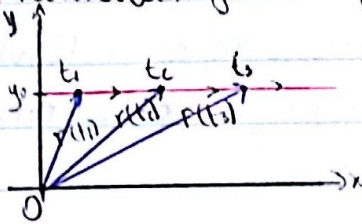 y
t₁ t₂ t₃
y₀
r(t₁) r(t₂) r(t₃)
O x